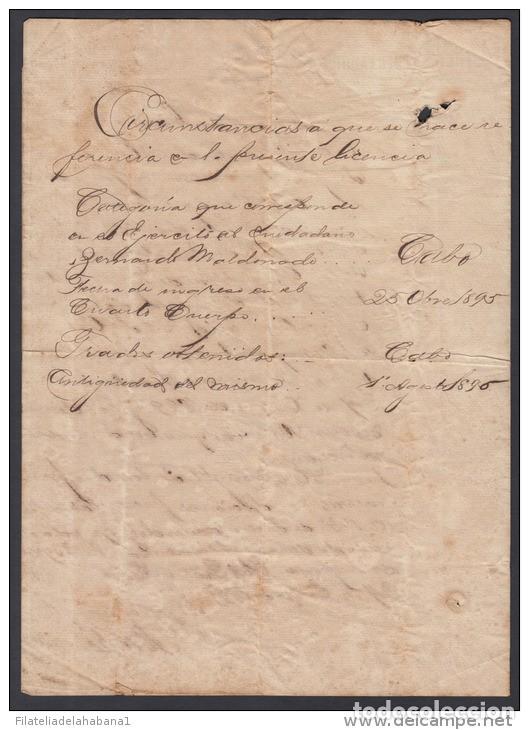 Circunstancias a que se hace re
ferencia en la presente licencia
Categoria que corresponde
en el Ejercito al Ciudadano
Bernardo Maldonado . . . . Cabo
Fecha de ingreso en el
Cuarto Cuerpo. . . . . . 25 Obre 1895
Grados obtenidos: . . Cabo
Antigüedad del mismo . . 1º Agosto 1896
FilateliadelaHabana1
todocoleccion
www.delcampe.net